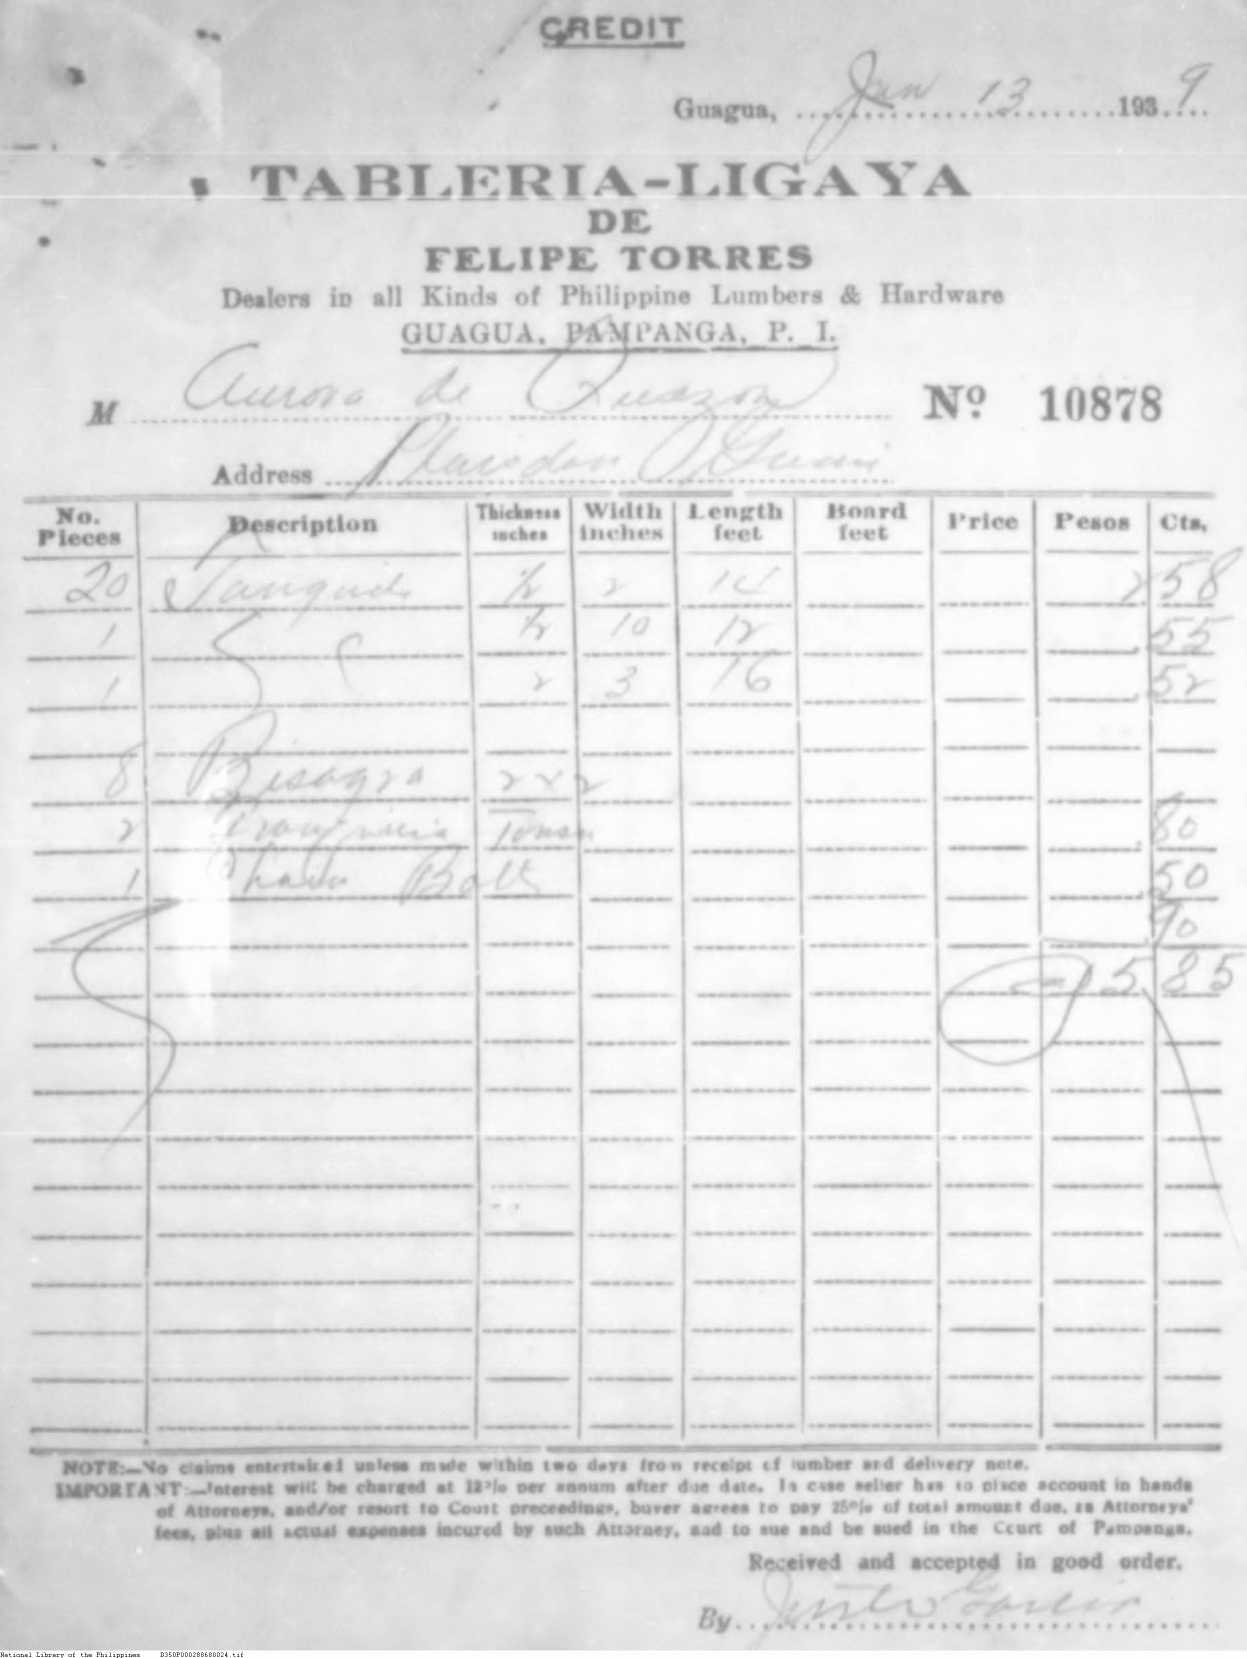 CREDIT
Guagua, Jan 13 1939
TABLERIA-LIGAYA
DE
FELIPE TORRES
Dealers in all Kinds of Philippine Lumbers & Hardware
GUAGUA, PAMPANGA, P. I.
M Aurora de Quezon Nº 10878
Address
No. Pieces Description Thickness inches Width inches Length feet Board feet Price Pesos Cts.
20 Tanguile ½ 2 14 2 58
1 ½ 10 12 .55
1 2 3 16 .52
8 Bisagra 2 x 2
2 80
1 Chain Bolt .50
90
5 85
NOTE:—No claims entertained unless made within two days from receipt of lumber and delivery note.
IMPORTANT:—Interest will be charged at 12% per annum after due date. In case seller has to place account in hands
of Attorneys, and/or resort to Court preceedings, buyer agrees to pay 25% of total amount due, as Attorneys'
fees, plus all actual expenses incured by such Attorney, and to sue and be sued in the Court of Pampanga.
Received and accepted in good order.
By
National Library of the Philippines B350P000288680024.tif